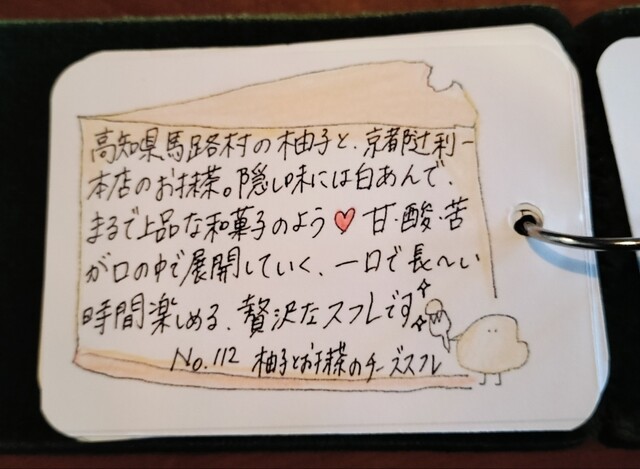 高知県馬路村の柚子と、京都辻利一
本店のお抹茶。隠し味には白あんで、
まるで上品な和菓子のよう♥甘・酸・苦
が口の中で展開していく、一口で長〜い
時間楽しめる、贅沢なスフレです
No.112 柚子とお抹茶のチーズスフレ